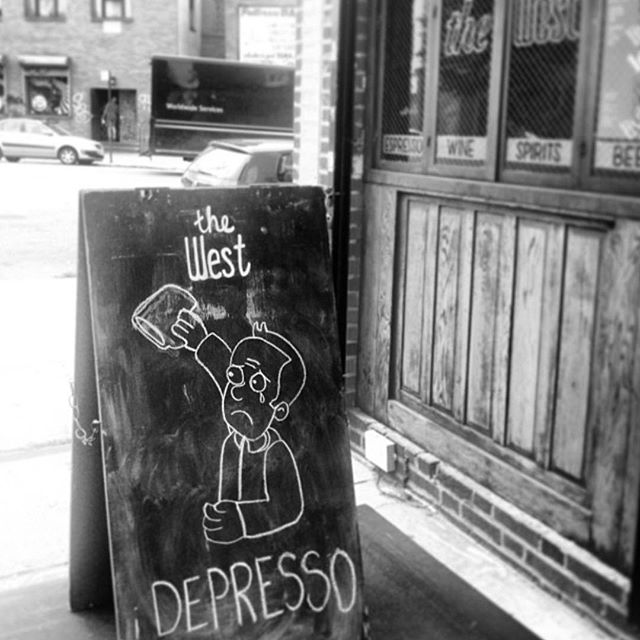 the
West
DEPRESSO
the West
ESPRESSO
WINE
SPIRITS
Worldwide Services